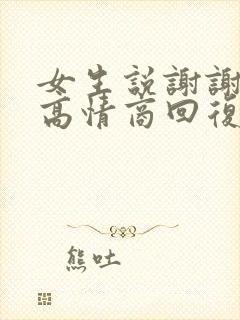 女生說謝謝
高情商回復
熊吐